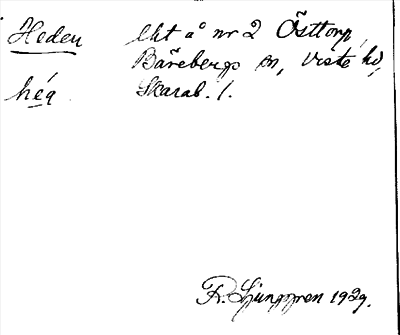 Heden lht å nr 2 Östtorp,
Bärebergs sn, Viste hd,
héa Skarab. l.
Fr. Ljunggren 1929.